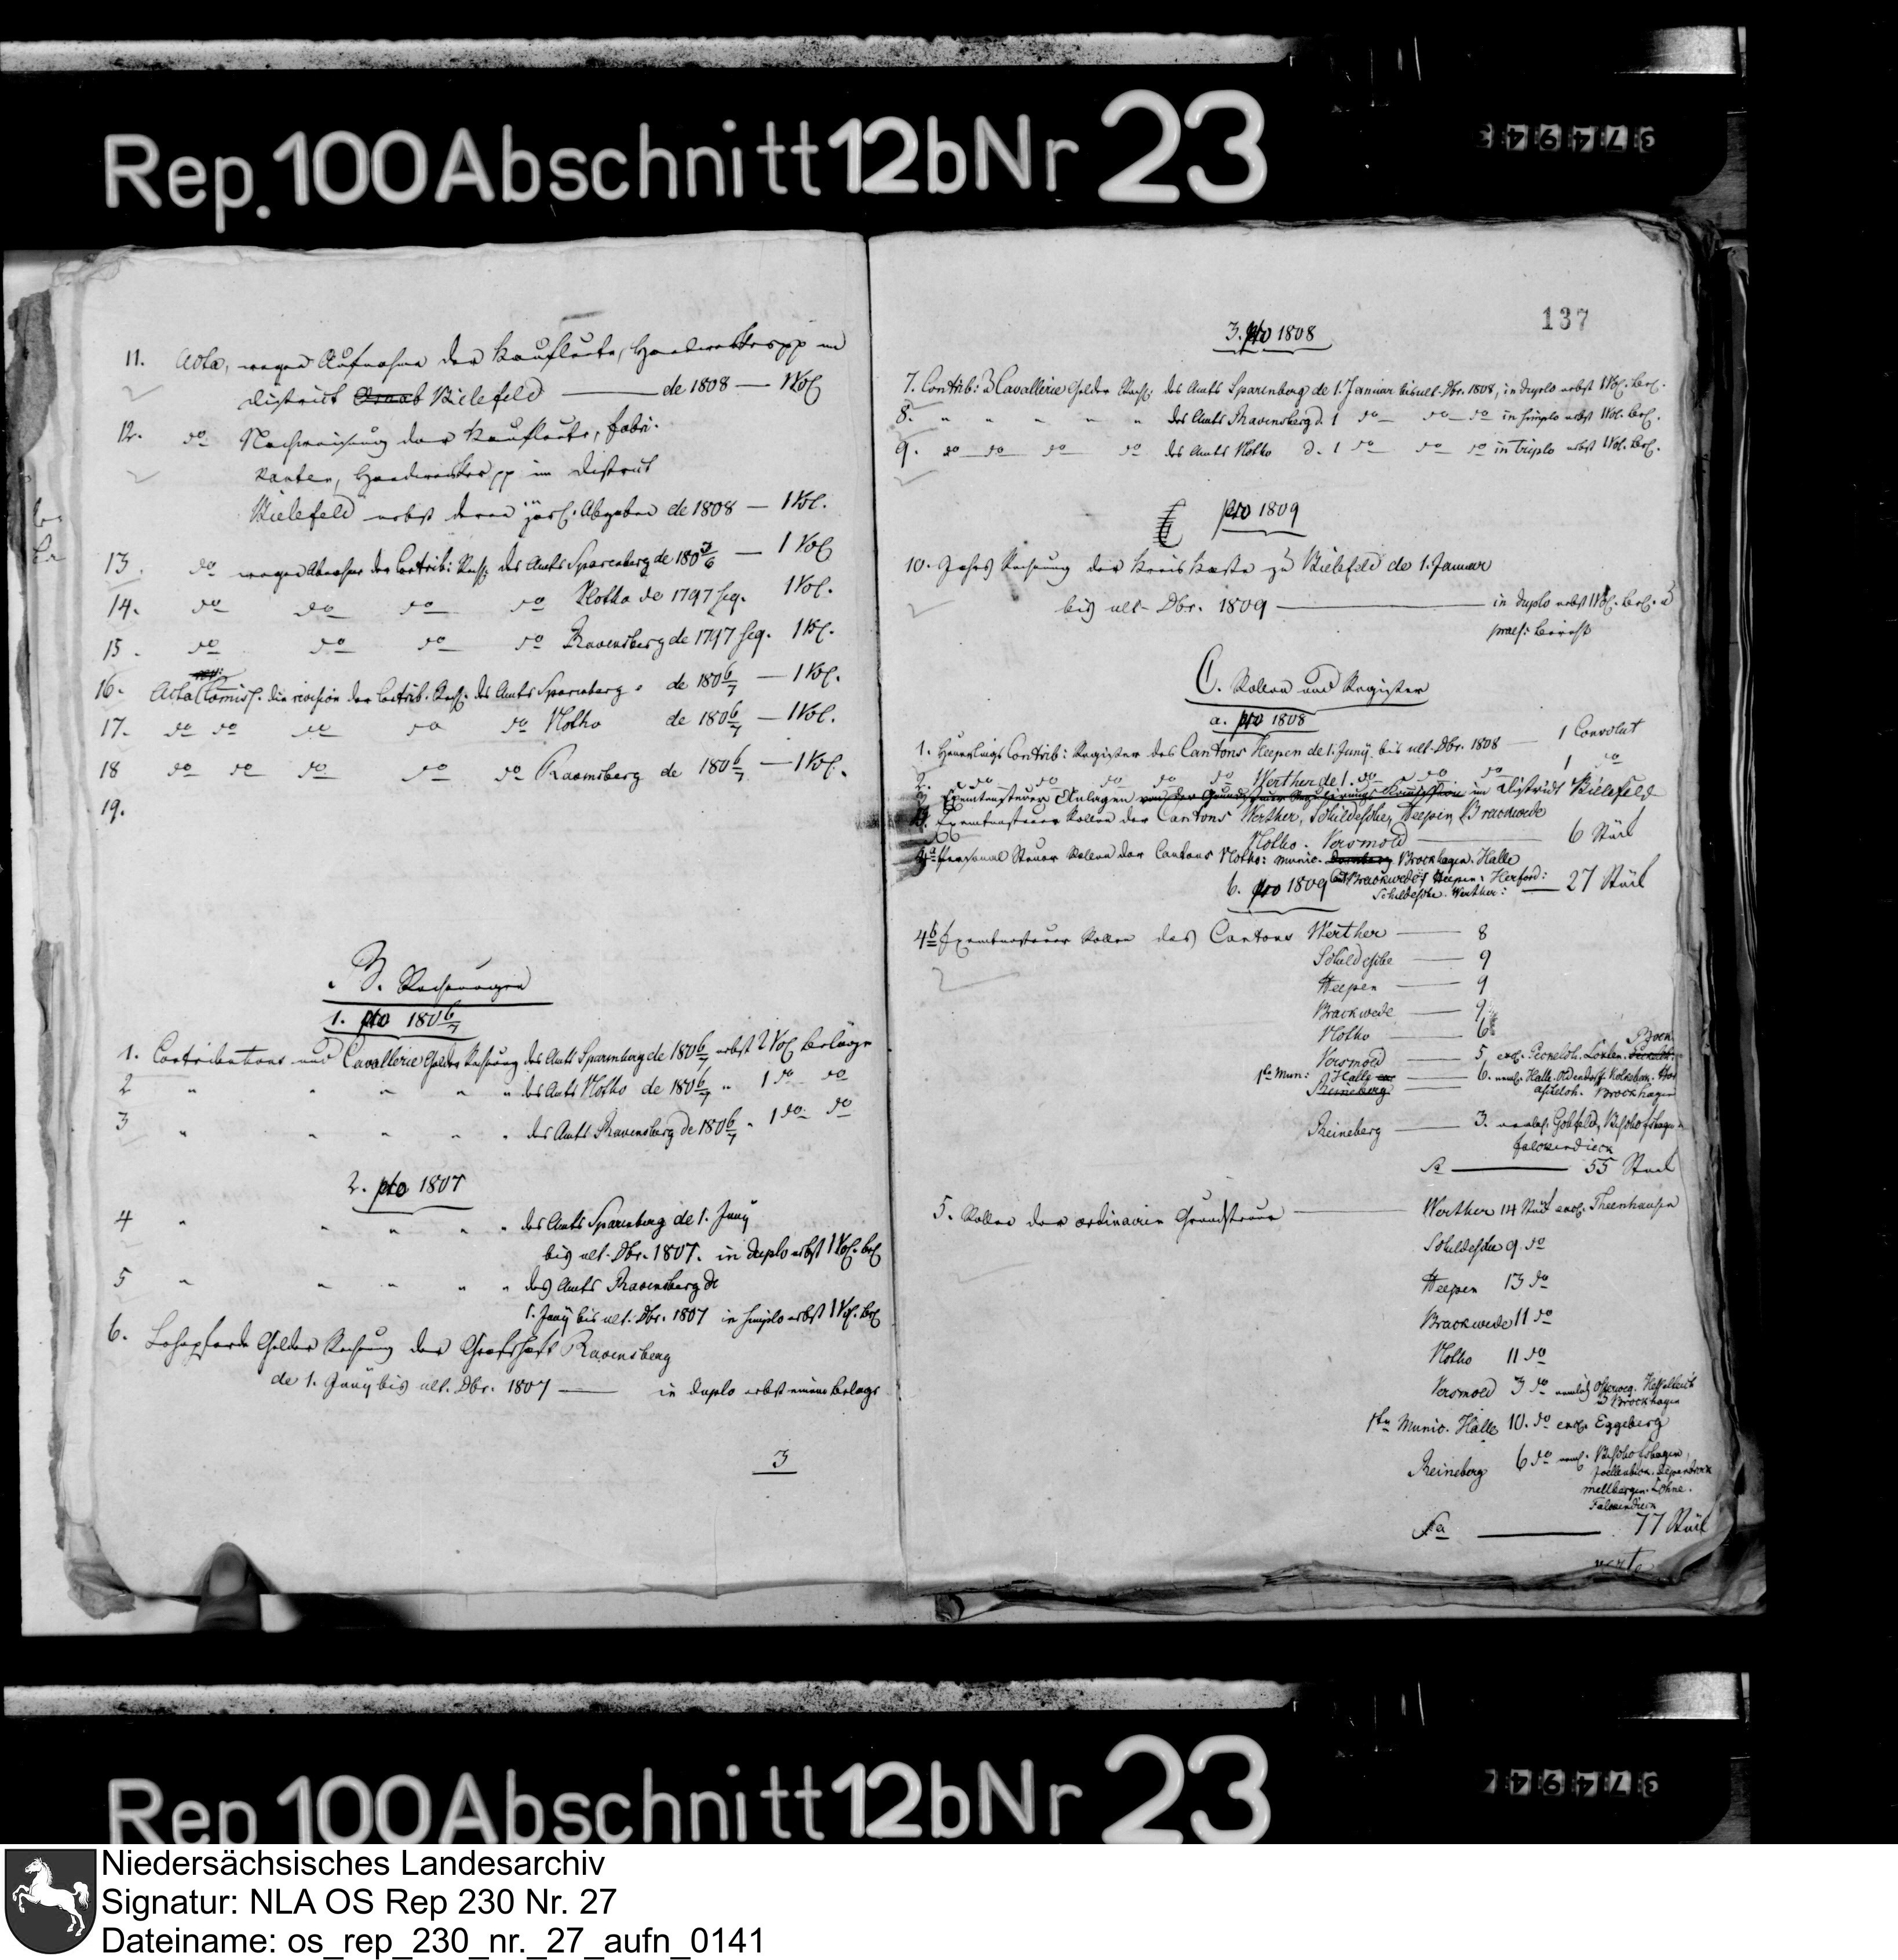 Rep. 100 Abschnitt 12b Nr 23
11. Acta, wegen Aufnahme der Kaufleute, Handwerker pp im
District Bielefeld — de 1808 — 1 Vol.
12. do Nachweisung der Kaufleute, Fabri-
kanten, Handwerker pp im District
Bielefeld nebst deren jährl. Abgaben de 1808 — 1 Vol.
13. do wegen Abnahme der Contrib: Rech. des Amts Sparenberg de 180 — 1 Vol
14. do do do do Vlotho de 1797 seq. 1 Vol.
15. do do do do Ravensberg de 1797 seq. 1 Vol.
16. Acta Comiss. die revision der Contrib. Rech. des Amts Sparenberg de 180 6/7 — 1 Vol.
17. do do do do do Vlotho de 180 6/7 — 1 Vol.
18 do do do do do Ravensberg de 180 6/7 — 1 Vol.
19.
B. Rechnungen
1. pro 180 6/7
1. Contributions und Cavallerie Gelder Rechnung des Amts Sparenberg de 180 6/7 nebst 2 Vol Beläge
2 " " " " " des Amts Vlotho de 180 6/7 " 1 do do
3 " " " " " des Amts Ravensberg de 180 6/7 " 1 do do
2. pro 1807
4 " " " " " des Amts Sparenberg de 1. Juny
bis ult. Dbr. 1807. in duplo nebst 1 Vol. Bel
5 " " " " " des Amts Ravensberg de
1. Juny bis ult. Dbr. 1807 in simplo nebst 1 Vol. Bel
6. Gelder Rechnung der Grafschaft Ravensberg
de 1. Juny bis ult. Dbr. 1807 — in duplo nebst einem Belage
3
137
3. pro 1808
7. Contrib: & Cavallerie Gelder Rech. des Amts Sparenberg de 1. Januar bis ult. Dbr. 1808, in duplo nebst 1 Vol. Bel.
8. " " " " " des Amts Ravensberg d. 1 do do do in simplo nebst 1 Vol. Bel.
9. do do do do des Amts Vlotho d. 1 do do do in triplo nebst 1 Vol. Bel.
pro 1809
10. Jahres Rechnung der Kreis Kasse zu Bielefeld de 1. Januar
bis ult. Dbr. 1809 — in duplo nebst 1 Vol. Bel. u
Bericht
C. Rollen und Register
a. pro 1808
1. Heuerlings Contrib: Register des Cantons Heepen de 1. Juny bis ult. Dbr. 1808 — 1 Convolut
2. do do do do do Werther de 1. do do do 1 do
3. Exemtensteuer Anlagen von der Grundsteuer Regulirungs Commission im District Bielefeld
4. Exemtensteuer Rollen der Cantons Werther, Schildesche, Heepen, Brackwede
Vlotho. Versmold — 6 Stück
4a Personal Steuer Rollen der Cantons Vlotho: munic. Dornberg Brockhagen. Halle
Brackwede Heepen: Herford:
Schildesche. Werther: — 27 Stück
b. pro 1809
4b Exemtensteuer Rollen des Cantons Werther — 8
Schildesche — 9
Heepen — 9
Brackwede — 9
Vlotho — 6
Versmold — 5 excl. Peckeloh. Loxten.
1te Mun: Halle — 6. nemlich Halle. Oldendorf.
Brockhagen
Reineberg — 3. nemlich Gohfeld, Bischofshagen
Falscheider
Sa — 55 Stück
5. Rollen der ordinairen Grundsteuer — Werther 14 Stück excl. Theenhausen
Schildesche 9. do
Heepen 13 do
Brackwede 11 do
Vlotho 11 do
Versmold 3 do nemlich Osterweg. Hesselteich
u Brockhagen
1ten Munic. Halle 10. do excl. Eggeberg
Reineberg 6 do nemlich Bischofshagen
Melbergen. Löhne.
Sa — 77 Stück
verte
Rep 100 Abschnitt 12b Nr 23
Niedersächsisches Landesarchiv
Signatur: NLA OS Rep 230 Nr. 27
Dateiname: os_rep_230_nr._27_aufn_0141